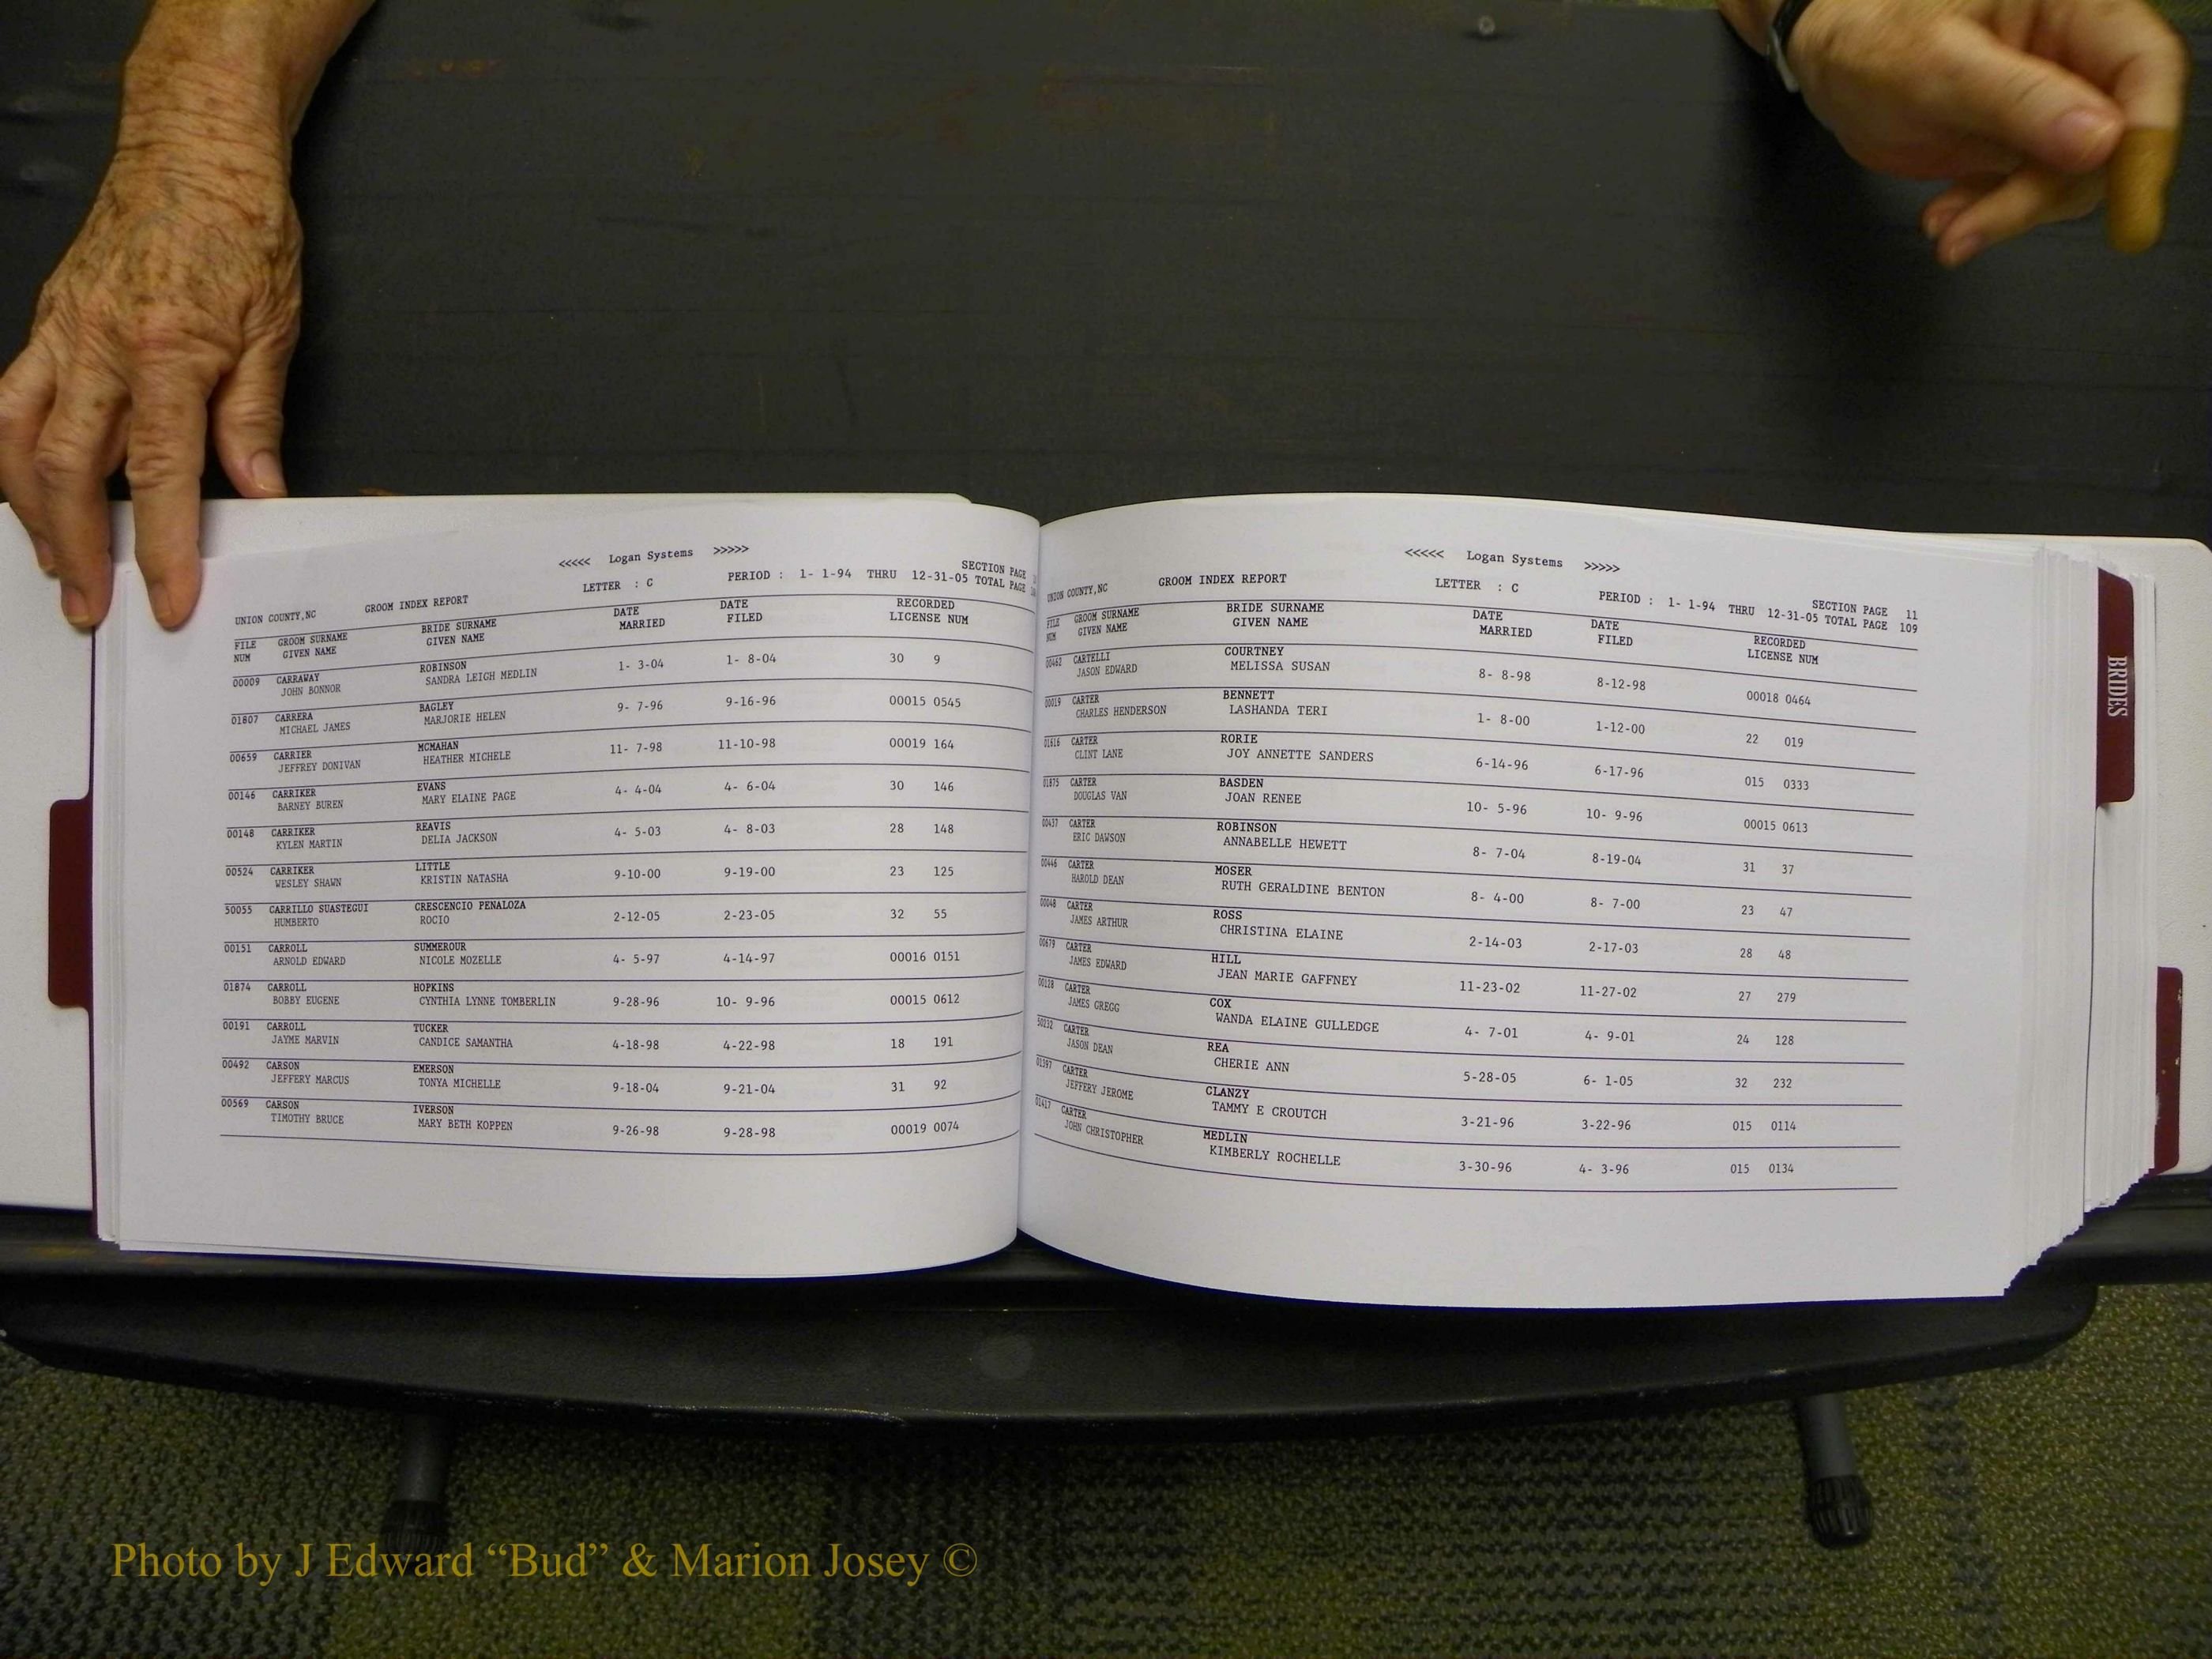 <<<<< Logan Systems >>>>>
SECTION PAGE
LETTER : C PERIOD : 1- 1-94 THRU 12-31-05 TOTAL PAGE
UNION COUNTY,NC GROOM INDEX REPORT
FILE GROOM SURNAME BRIDE SURNAME DATE DATE RECORDED
NUM GIVEN NAME GIVEN NAME MARRIED FILED LICENSE NUM
00009 CARRAWAY ROBINSON 1- 3-04 1- 8-04 30 9
JOHN BONNOR SANDRA LEIGH MEDLIN
01807 CARRERA BAGLEY 9- 7-96 9-16-96 00015 0545
MICHAEL JAMES MARJORIE HELEN
00659 CARRIER MCMAHAN 11- 7-98 11-10-98 00019 164
JEFFREY DONIVAN HEATHER MICHELE
00146 CARRIKER EVANS 4- 4-04 4- 6-04 30 146
BARNEY BUREN MARY ELAINE PAGE
00148 CARRIKER REAVIS 4- 5-03 4- 8-03 28 148
KYLEN MARTIN DELIA JACKSON
00524 CARRIKER LITTLE 9-10-00 9-19-00 23 125
WESLEY SHAWN KRISTIN NATASHA
50055 CARRILLO SUASTEGUI CRESCENCIO PENALOZA 2-12-05 2-23-05 32 55
HUMBERTO ROCIO
00151 CARROLL SUMMEROUR 4- 5-97 4-14-97 00016 0151
ARNOLD EDWARD NICOLE MOZELLE
01874 CARROLL HOPKINS 9-28-96 10- 9-96 00015 0612
BOBBY EUGENE CYNTHIA LYNNE TOMBERLIN
00191 CARROLL TUCKER 4-18-98 4-22-98 18 191
JAYME MARVIN CANDICE SAMANTHA
00492 CARSON EMERSON 9-18-04 9-21-04 31 92
JEFFERY MARCUS TONYA MICHELLE
00569 CARSON IVERSON 9-26-98 9-28-98 00019 0074
TIMOTHY BRUCE MARY BETH KOPPEN
<<<<< Logan Systems >>>>>
SECTION PAGE 11
UNION COUNTY,NC GROOM INDEX REPORT LETTER : C PERIOD : 1- 1-94 THRU 12-31-05 TOTAL PAGE 109
FILE GROOM SURNAME BRIDE SURNAME DATE DATE RECORDED
NUM GIVEN NAME GIVEN NAME MARRIED FILED LICENSE NUM
00462 CARTELLI COURTNEY 8- 8-98 8-12-98 00018 0464
JASON EDWARD MELISSA SUSAN
00019 CARTER BENNETT 1- 8-00 1-12-00 22 019
CHARLES HENDERSON LASHANDA TERI
01616 CARTER RORIE 6-14-96 6-17-96 015 0333
CLINT LANE JOY ANNETTE SANDERS
01875 CARTER BASDEN 10- 5-96 10- 9-96 00015 0613
DOUGLAS VAN JOAN RENEE
00437 CARTER ROBINSON 8- 7-04 8-19-04 31 37
ERIC DAWSON ANNABELLE HEWETT
00446 CARTER MOSER 8- 4-00 8- 7-00 23 47
HAROLD DEAN RUTH GERALDINE BENTON
00048 CARTER ROSS 2-14-03 2-17-03 28 48
JAMES ARTHUR CHRISTINA ELAINE
00679 CARTER HILL 11-23-02 11-27-02 27 279
JAMES EDWARD JEAN MARIE GAFFNEY
00128 CARTER COX 4- 7-01 4- 9-01 24 128
JAMES GREGG WANDA ELAINE GULLEDGE
50232 CARTER REA 5-28-05 6- 1-05 32 232
JASON DEAN CHERIE ANN
01397 CARTER GLANZY 3-21-96 3-22-96 015 0114
JEFFERY JEROME TAMMY E CROUTCH
01417 CARTER MEDLIN 3-30-96 4- 3-96 015 0134
JOHN CHRISTOPHER KIMBERLY ROCHELLE
BRIDES
Photo by J Edward “Bud” & Marion Josey ©